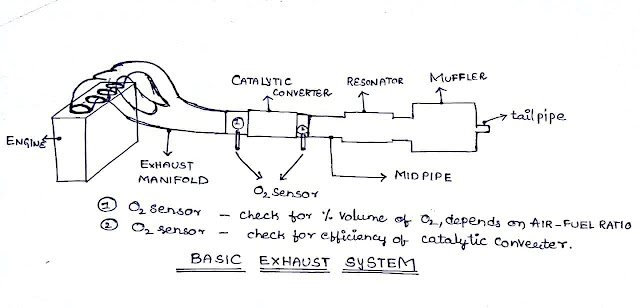 CATALYTIC
CONVERTER
RESONATOR
MUFFLER
tail pipe
ENGINE
①
②
EXHAUST
MANIFOLD
O₂ sensor
MID PIPE
① O₂ sensor – check for % volume of O₂, depends on AIR-FUEL RATIO
② O₂ sensor – check for efficiancy of catalytic converter.
BASIC EXHAUST SYSTEM